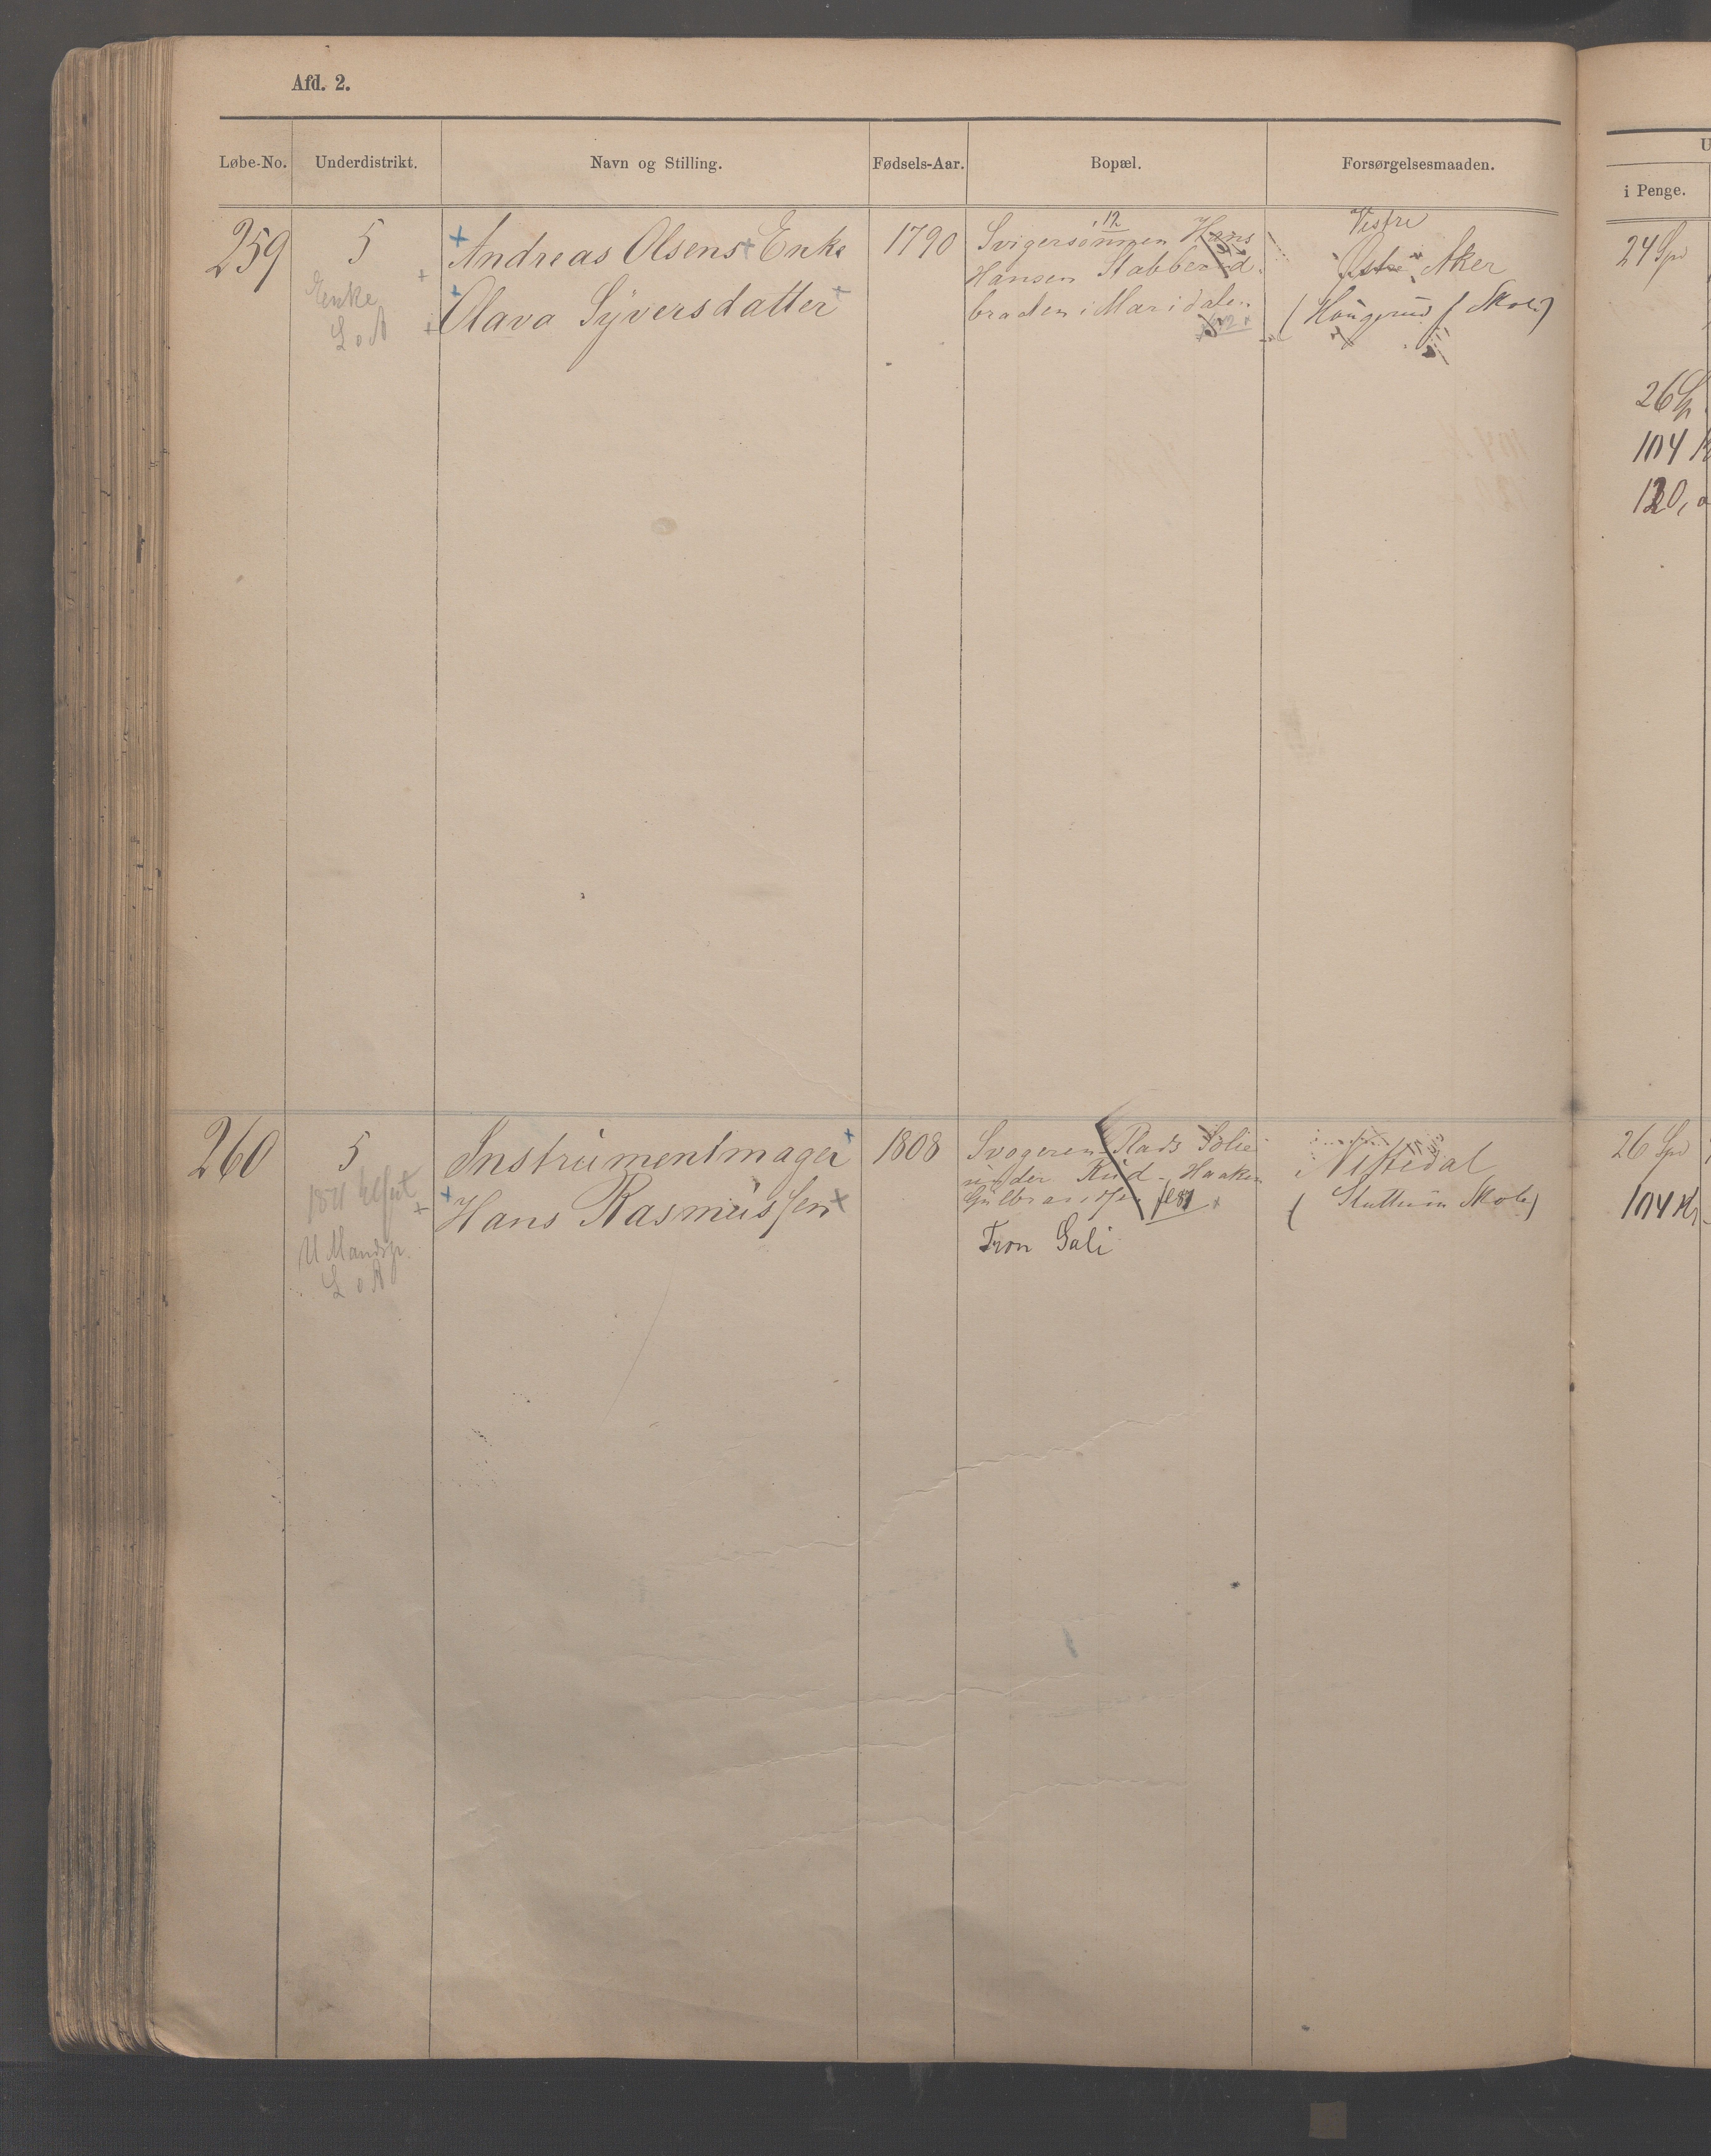 Afd. 2.
Løbe-No. Underdistrikt. Navn og Stilling. Fødsels-Aar. Bopæl. Forsørgelsesmaaden.
U
i Penge.
259 5 Andreas Olsens Enke 1790 Svigersønnen Hans
Enke Olava Syversdatter Hansen Stabberud
L o A braaden i Maridalen
12
Vestre
Østre Aker
(Haugerud Skole)
24 Spd
26 Sp
104 K
120,
260 5 Instrumentmager 1808 Svogeren Plads Solie
Hans Rasmussen under Rud - Haaken
Gulbrandsen
Tron Gali
U Mandsp.
L o A
Nittedal
( Skole)
26 Spd
104 Kr